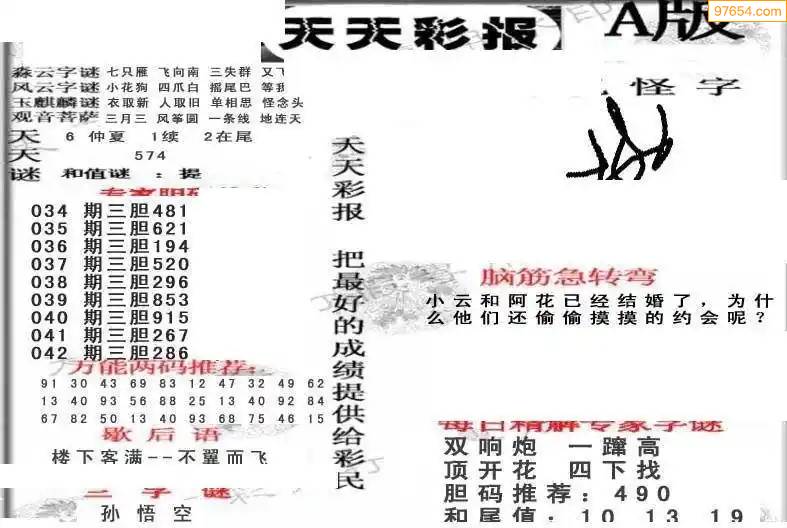 天天彩报
A版
97654.com
怪字
森云字谜 七只雁 飞向南 三失群 又飞
风云字谜 小花狗 四爪白 摇尾巴 等我
玉麒麟谜 衣取新 人取旧 单相思 怪念头
观音菩萨 三月三 风筝圆 一条线 地连天
天 6 仲夏 1续 2在尾
天 574
谜 和值谜 : 提
034 期三胆481
035 期三胆621
036 期三胆194
037 期三胆520
038 期三胆296
039 期三胆853
040 期三胆915
041 期三胆267
042 期三胆286
万能两码推荐:
91 30 43 69 83 12 47 32 49 62
13 40 93 56 88 25 13 40 92 84
67 82 50 13 40 93 68 75 46 15
歇后语
楼下客满--不翼而飞
三字谜
孙悟空
天天彩报 把最好的成绩提供给彩民
脑筋急转弯
小云和阿花已经结婚了，为什
么他们还偷偷摸摸的约会呢？
每日精解专家字谜
双响炮 一蹿高
顶开花 四下找
胆码推荐: 490
和尾值: 10 13 19